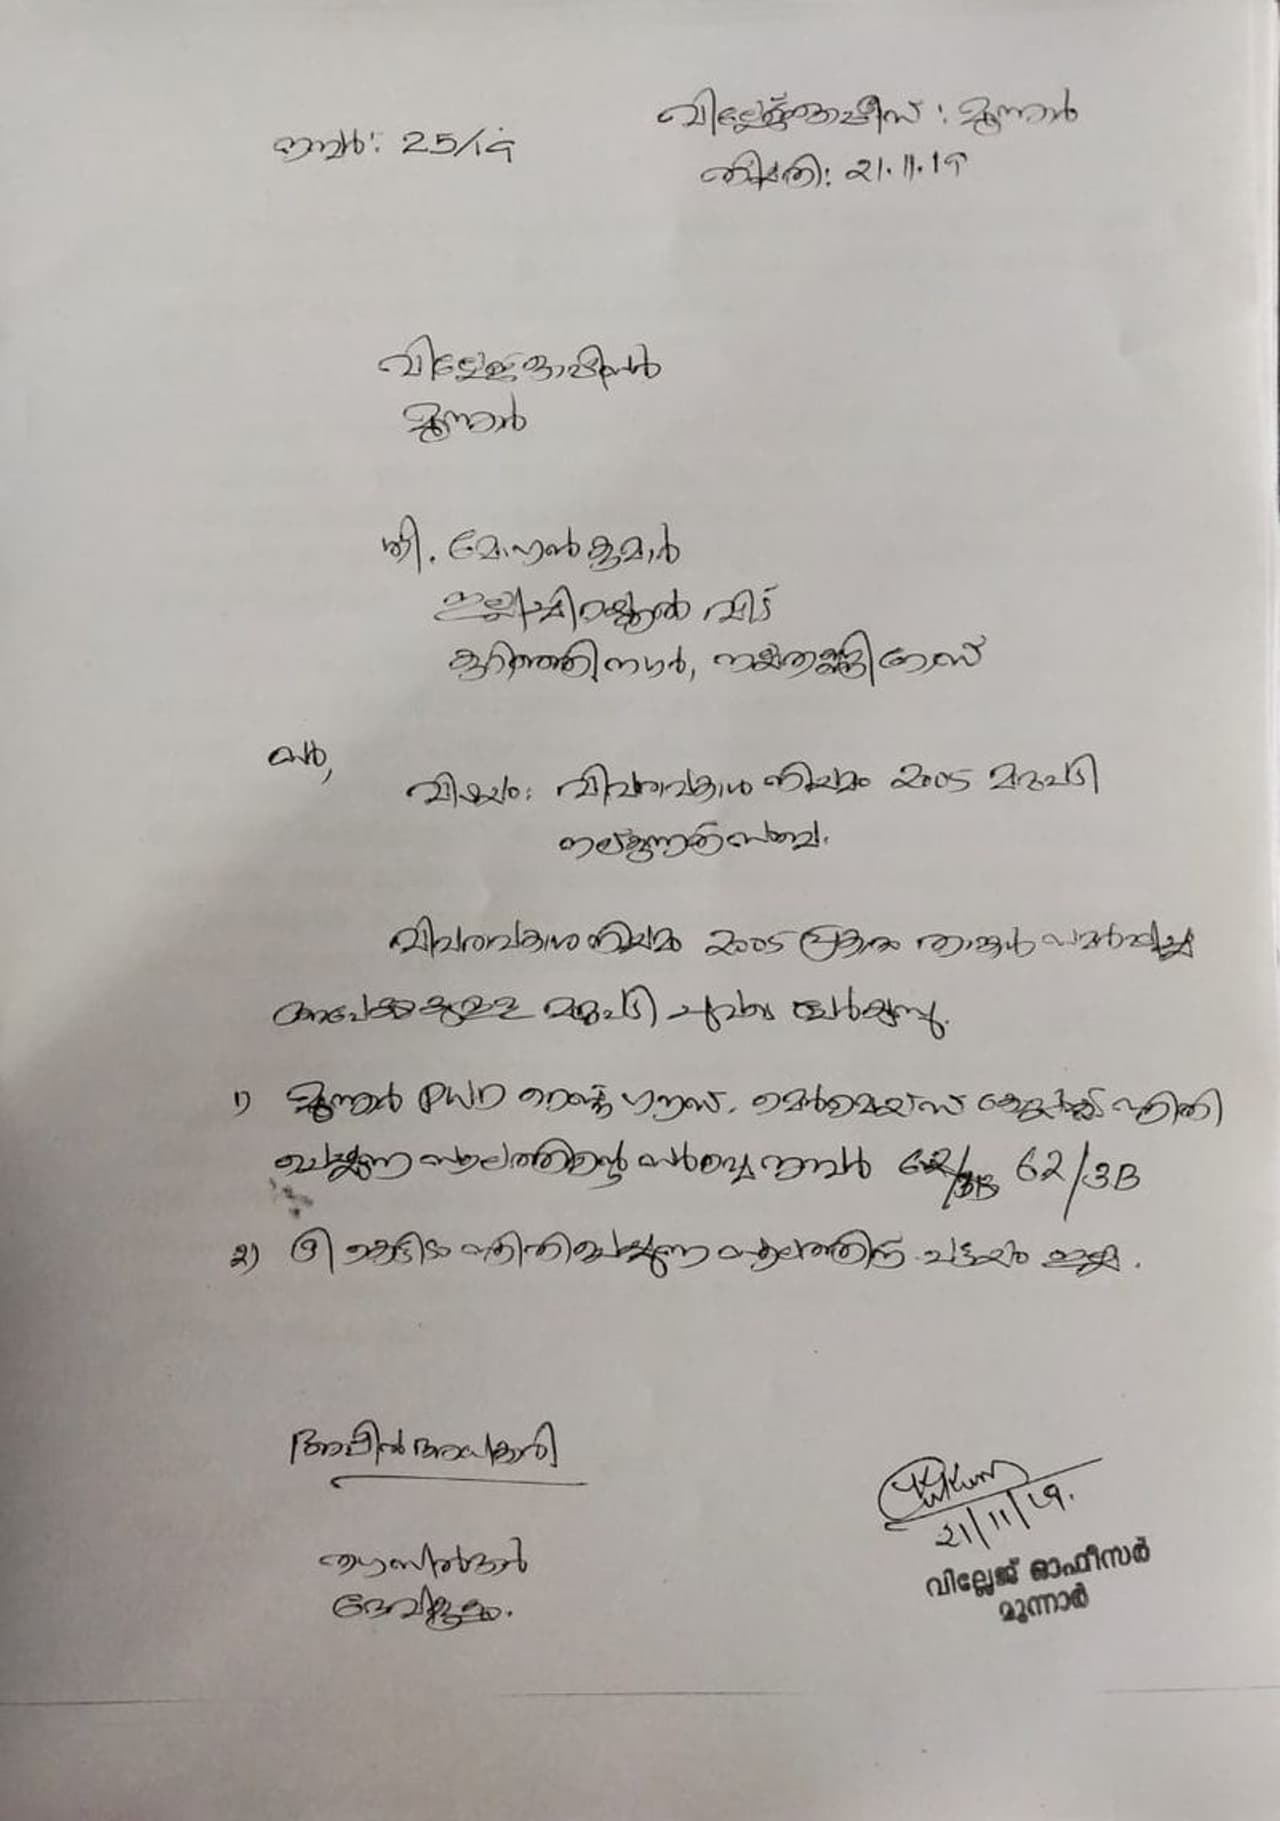 നമ്പർ: 25/19
വില്ലേജ്ആഫീസ് : മൂന്നാർ
തിയതി: 21.11.19
വില്ലേജ്ആഫീസർ
മൂന്നാർ
ശ്രീ. മോഹൻകുമാർ
വീട്
കുറിഞ്ഞിനഗർ,
സർ,
വിഷയം: വിവരാവകാശ നിയമം 2005 മറുപടി
നല്കുന്നത് സംബ.
വിവരാവകാശ നിയമം 2005 പ്രകാരം താങ്കൾ സമർപ്പിച്ച
അപേക്ഷക്കുള്ള മറുപടി ചുവടെ ചേർക്കുന്നു.
1) മൂന്നാർ PWD റെസ്റ്റ് ഹൗസ്, സ്ഥിതി
ചെയ്യുന്ന സ്ഥലത്തിന്റെ സർവ്വെ നമ്പർ 62/3B 62/3B
2) ടി കെട്ടിടം സ്ഥിതിചെയ്യുന്ന സ്ഥലത്തിന് പട്ടയം ഇല്ല.
അപ്പീൽ അധികാരി
തഹസിൽദാർ
ദേവികുളം.
21/11/19.
വില്ലേജ് ഓഫീസർ
മൂന്നാർ